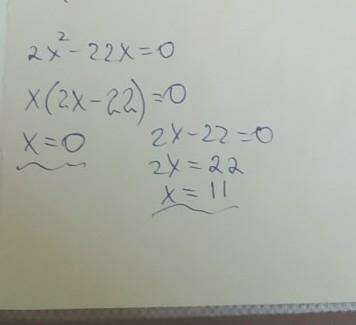 2x² - 22x = 0
x(2x - 22) = 0
x = 0
2x - 22 = 0
2x = 22
x = 11